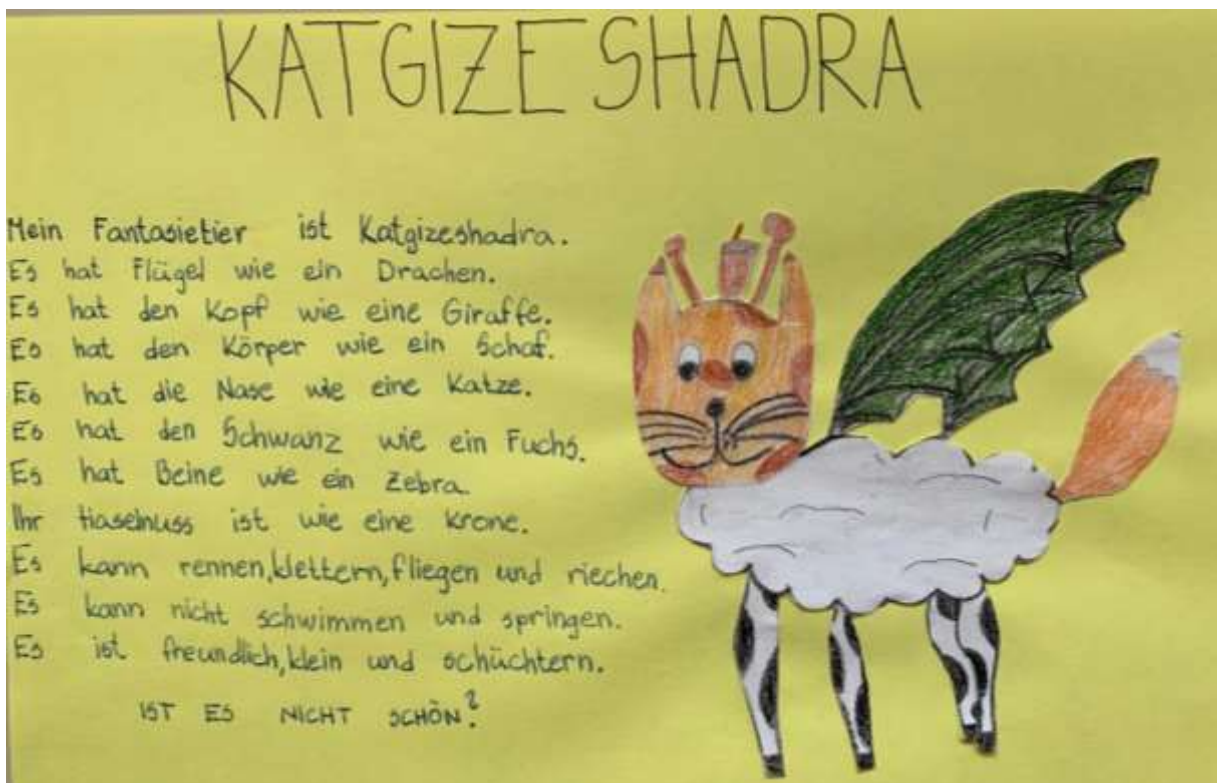 KATGIZESHADRA
Mein Fantasietier ist Katgizeshadra.
Es hat Flügel wie ein Drachen.
Es hat den Kopf wie eine Giraffe.
Es hat den Körper wie ein Schaf.
Es hat die Nase wie eine Katze.
Es hat den Schwanz wie ein Fuchs.
Es hat Beine wie ein Zebra.
Ihr Haselnuss ist wie eine Krone.
Es kann rennen,klettern,fliegen und riechen.
Es kann nicht schwimmen und springen.
Es ist freundlich,klein und schüchtern.
IST ES NICHT SCHÖN?